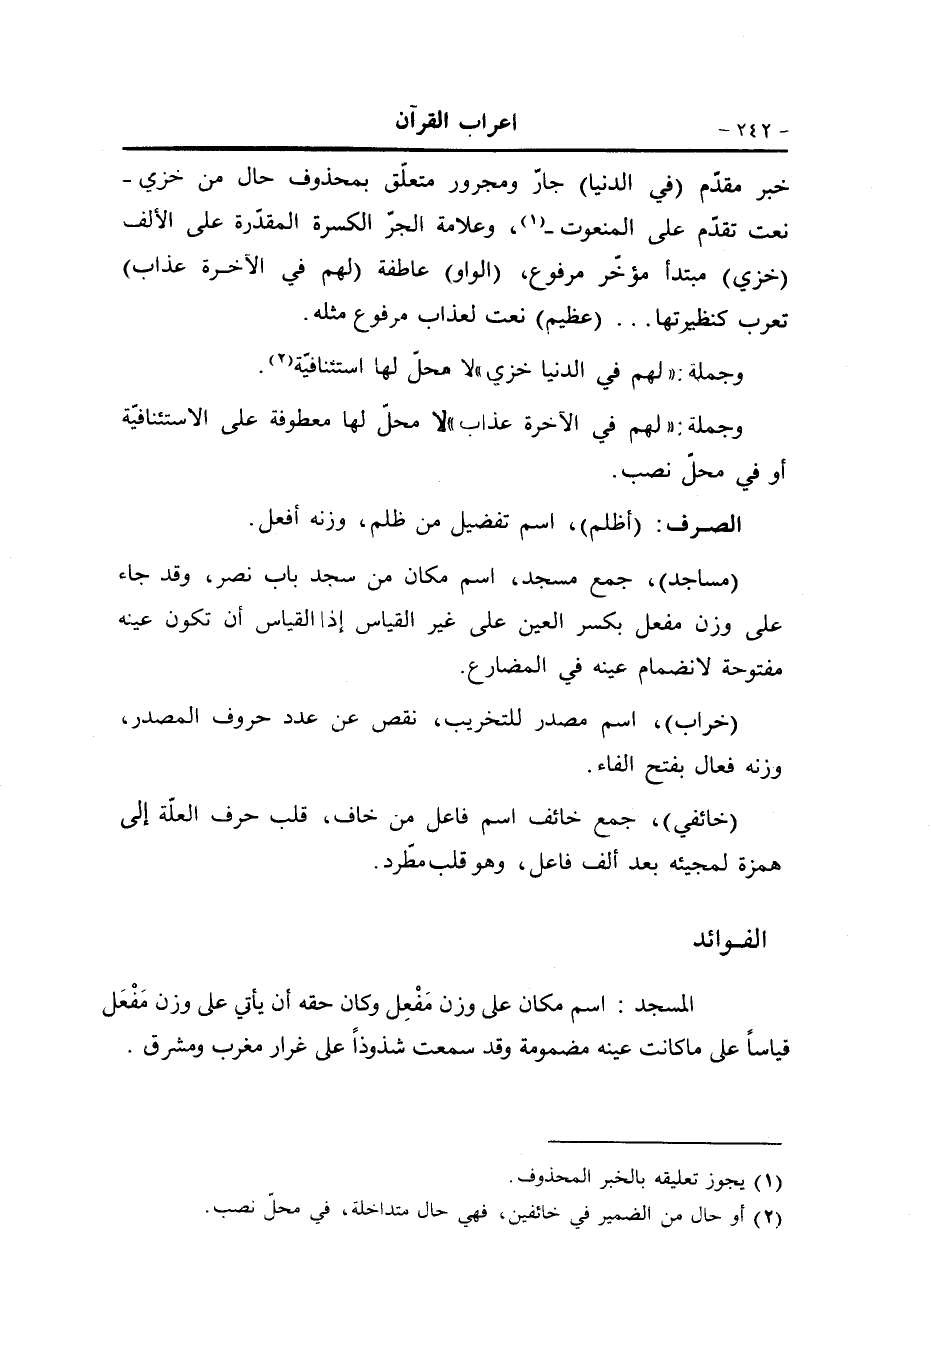 - ٢٤٢ -
اعراب القرآن
خبر مقدّم (في الدنيا) جارّ ومجرور متعلّق بمحذوف حال من خزي -
نعت تقدّم على المنعوت -(١)، وعلامة الجرّ الكسرة المقدّرة على الألف
(خزي) مبتدأ مؤخّر مرفوع، (الواو) عاطفة (لهم في الآخرة عذاب)
تعرب كنظيرتها... (عظيم) نعت لعذاب مرفوع مثله.
وجملة: «لهم في الدنيا خزي» لا محلّ لها استئنافيّة(٢).
وجملة: «لهم في الآخرة عذاب» لا محلّ لها معطوفة على الاستئنافيّة
أو في محلّ نصب.
الصرف: (أظلم)، اسم تفضيل من ظلم، وزنه أفعل.
(مساجد)، جمع مسجد، اسم مكان من سجد باب نصر، وقد جاء
على وزن مفعل بكسر العين على غير القياس إذا القياس أن تكون عينه
مفتوحة لانضمام عينه في المضارع.
(خراب)، اسم مصدر للتخريب، نقص عن عدد حروف المصدر،
وزنه فعال بفتح الفاء.
(خائفي)، جمع خائف اسم فاعل من خاف، قلب حرف العلّة إلى
همزة لمجيئه بعد ألف فاعل، وهو قلب مطّرد.
الفوائد
المسجد : اسم مكان على وزن مَفْعِل وكان حقه أن يأتي على وزن مَفْعَل
قياساً على ماكانت عينه مضمومة وقد سمعت شذوذاً على غرار مغرب ومشرق .
(١) يجوز تعليقه بالخبر المحذوف.
(٢) أو حال من الضمير في خائفين، فهي حال متداخلة، في محلّ نصب.